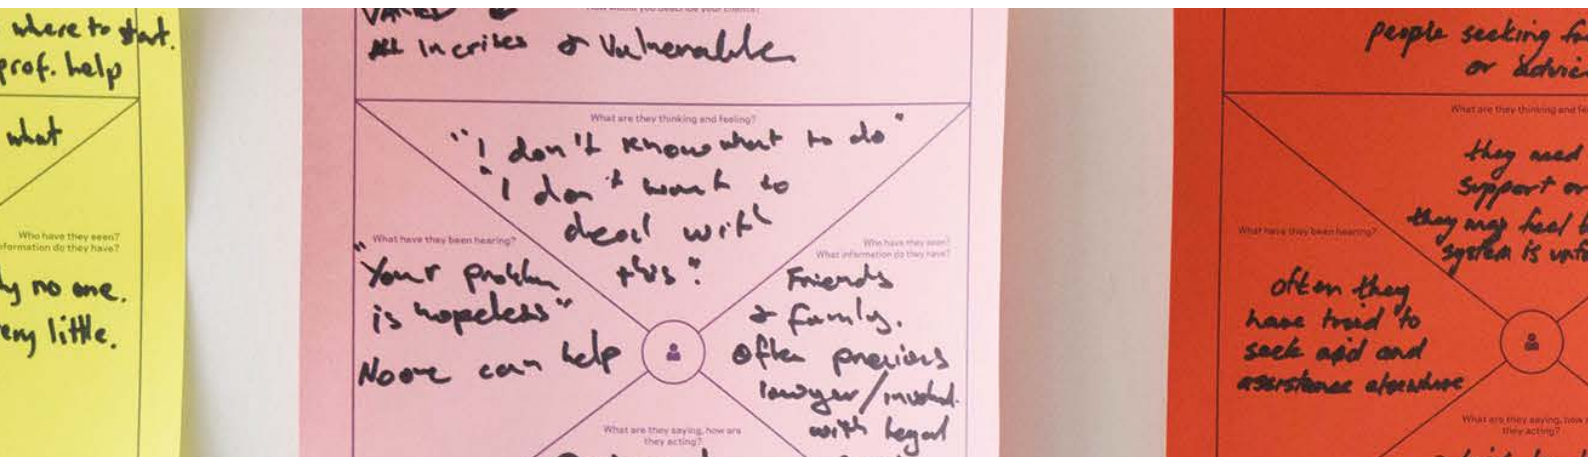 where to start.
prof. help
what
Who have they seen?
information do they have?
no one.
very little.
How would you describe your clients?
VARIED
All In crises & Vulnerable
What are they thinking and feeling?
"I don't know what to do"
"I don't want to
deal with
this"
What have they been hearing?
"Your problem
is hopeless"
No one can help
Who have they seen?
What information do they have?
Friends
& family.
Often previous
lawyer/involved.
with legal
What are they saying, how are
they acting?
people seeking
or advice
What are they thinking and
they need
support or
they may feel
system is
What have they been hearing?
often they
have tried to
seek aid and
assistance elsewhere
What are they saying, how
they acting?